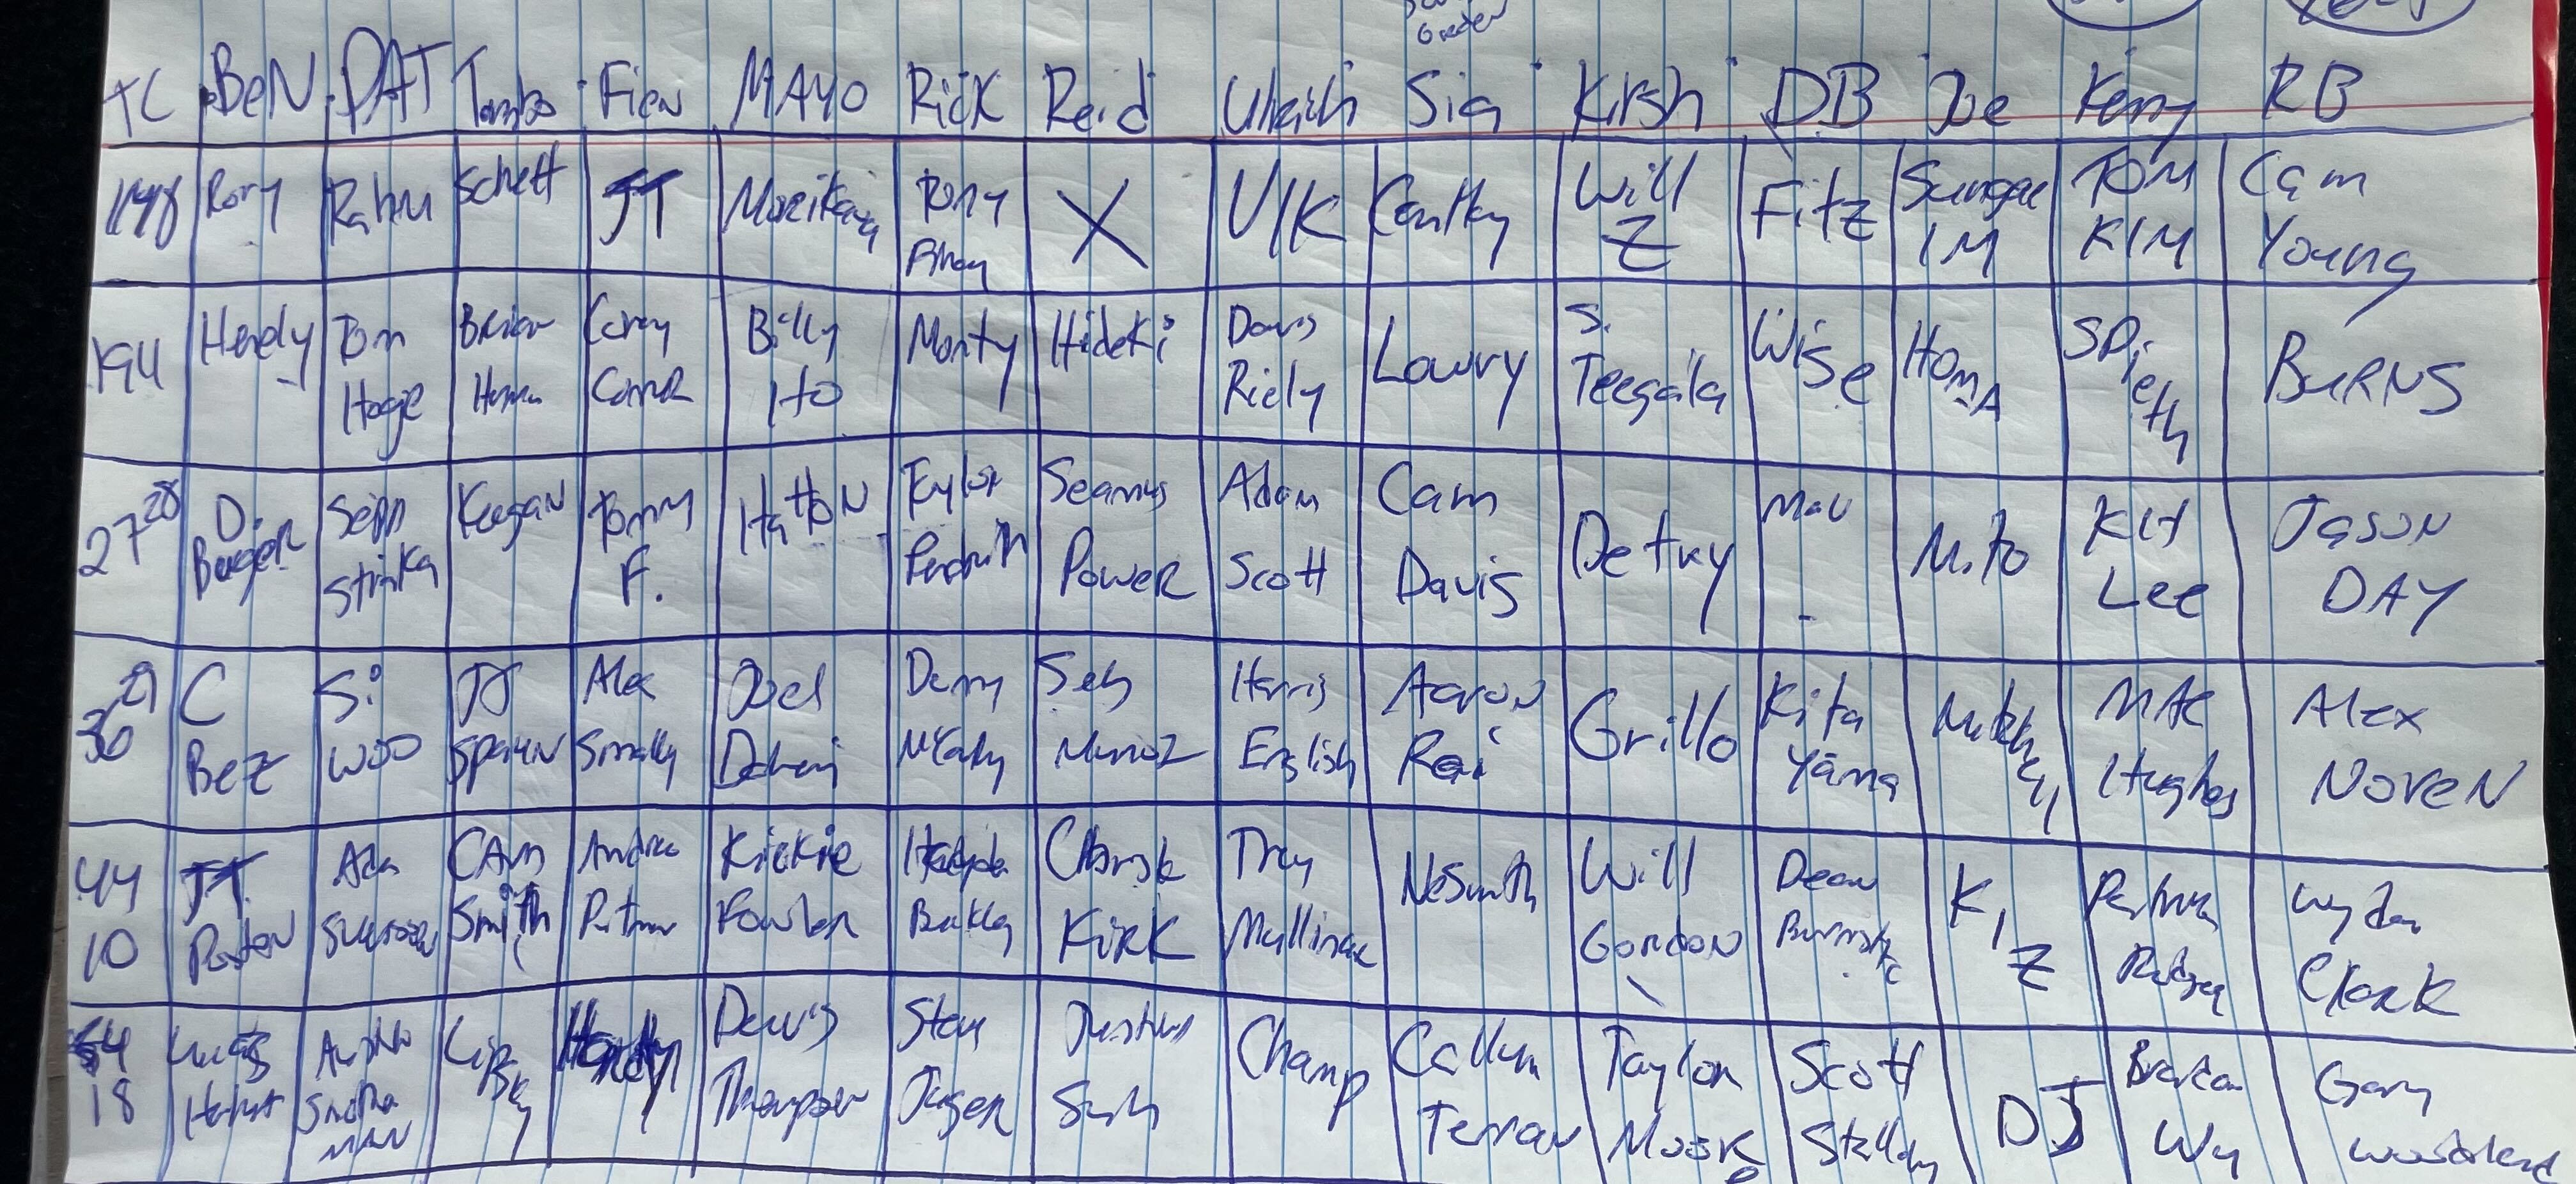 Greden
TC BeN PAT Tombo Fien MAYO Rick Reid Ulrich Sig Kirsh DB Joe Kerry RB
1748 Rory Rahm Scheff JT Morikawa Tony X V/K Cantlay Will Fitz Sungae TOM Cam
Finay Z IM KIM Young
194 Hendy Tom Brian Corey Billy Monty Hideki Davis Lowry S. Wise HomA SPieth BURNS
Hoge Harman ConnR Ho Riely Teegala
27 28 D. Sepp Keegan Tommy HattoN Taylor Seamus Adam Cam Detry Mav Mito KH Jason
Berger Straka F. Pendrith Power Scott Davis Lee DAY
29 C Si JJ Alex Joel Denny Seb Harris Aaron Grillo Kita Mitchell MAC Alex
36 Bez WOO SpauN Smally Dahmen McCarthy Munoz English Rai Yama Hughes NoreN
44 JT. Ada CAm Andrew Rickie Hayden Christ Trey NeSmith Will Dean K Patrick Wyndam
10 PostoN Svensson Smith Putnam Fowler Buckley KirK Mullinax GordoN Burmster I Z Rodgers Clark
54 Lucas Austin Lipsky Hardy Davis Stew Justin Champ Callum Taylor Scott DJ Brandon Gary
18 Herbert Smotherman Thompson Jager Suh Terren Moore Stallings Wu Woodland